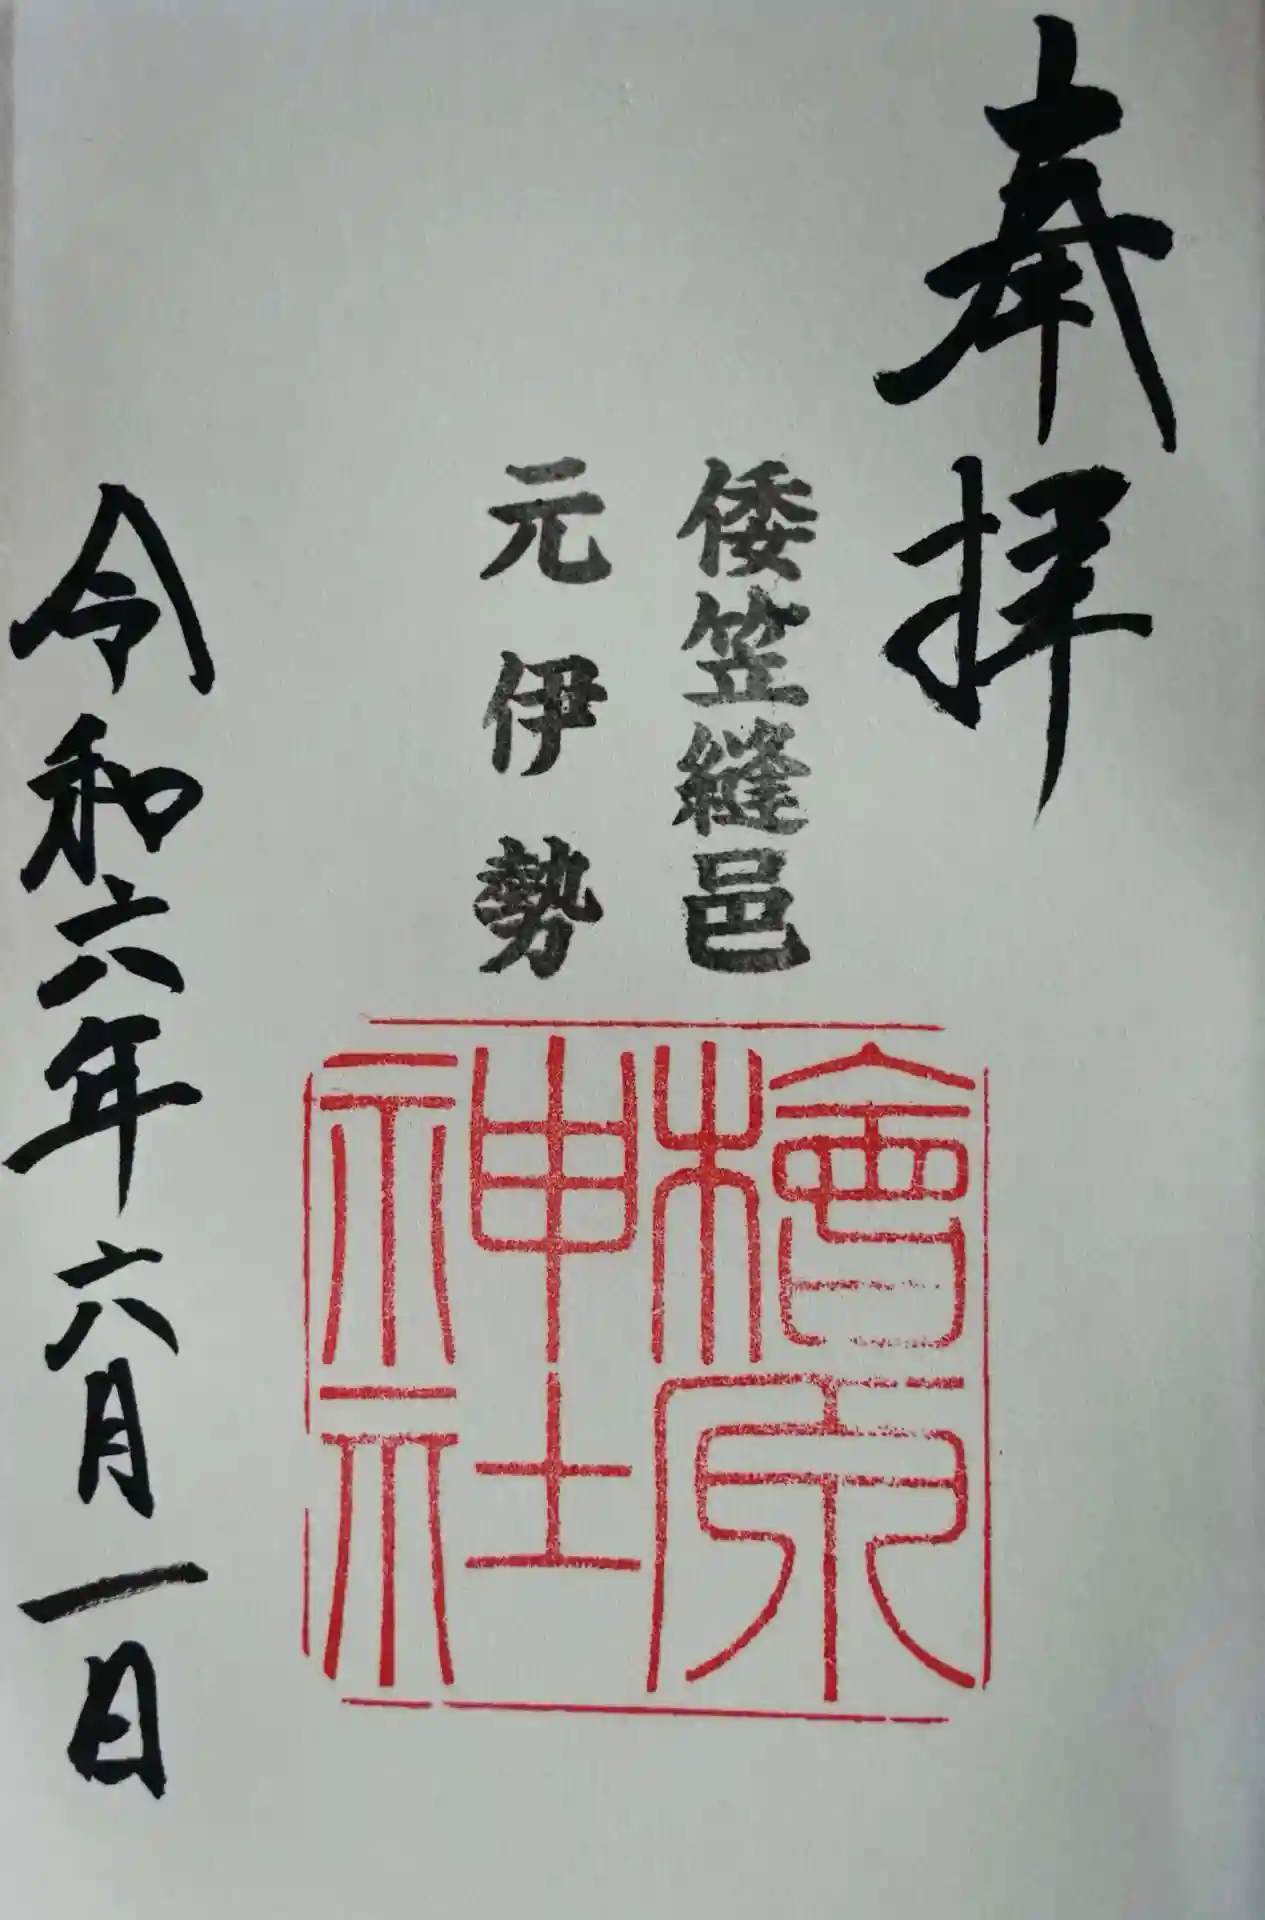 奉拝
倭笠縫邑
元伊勢
檜原神社
令和六年六月一日